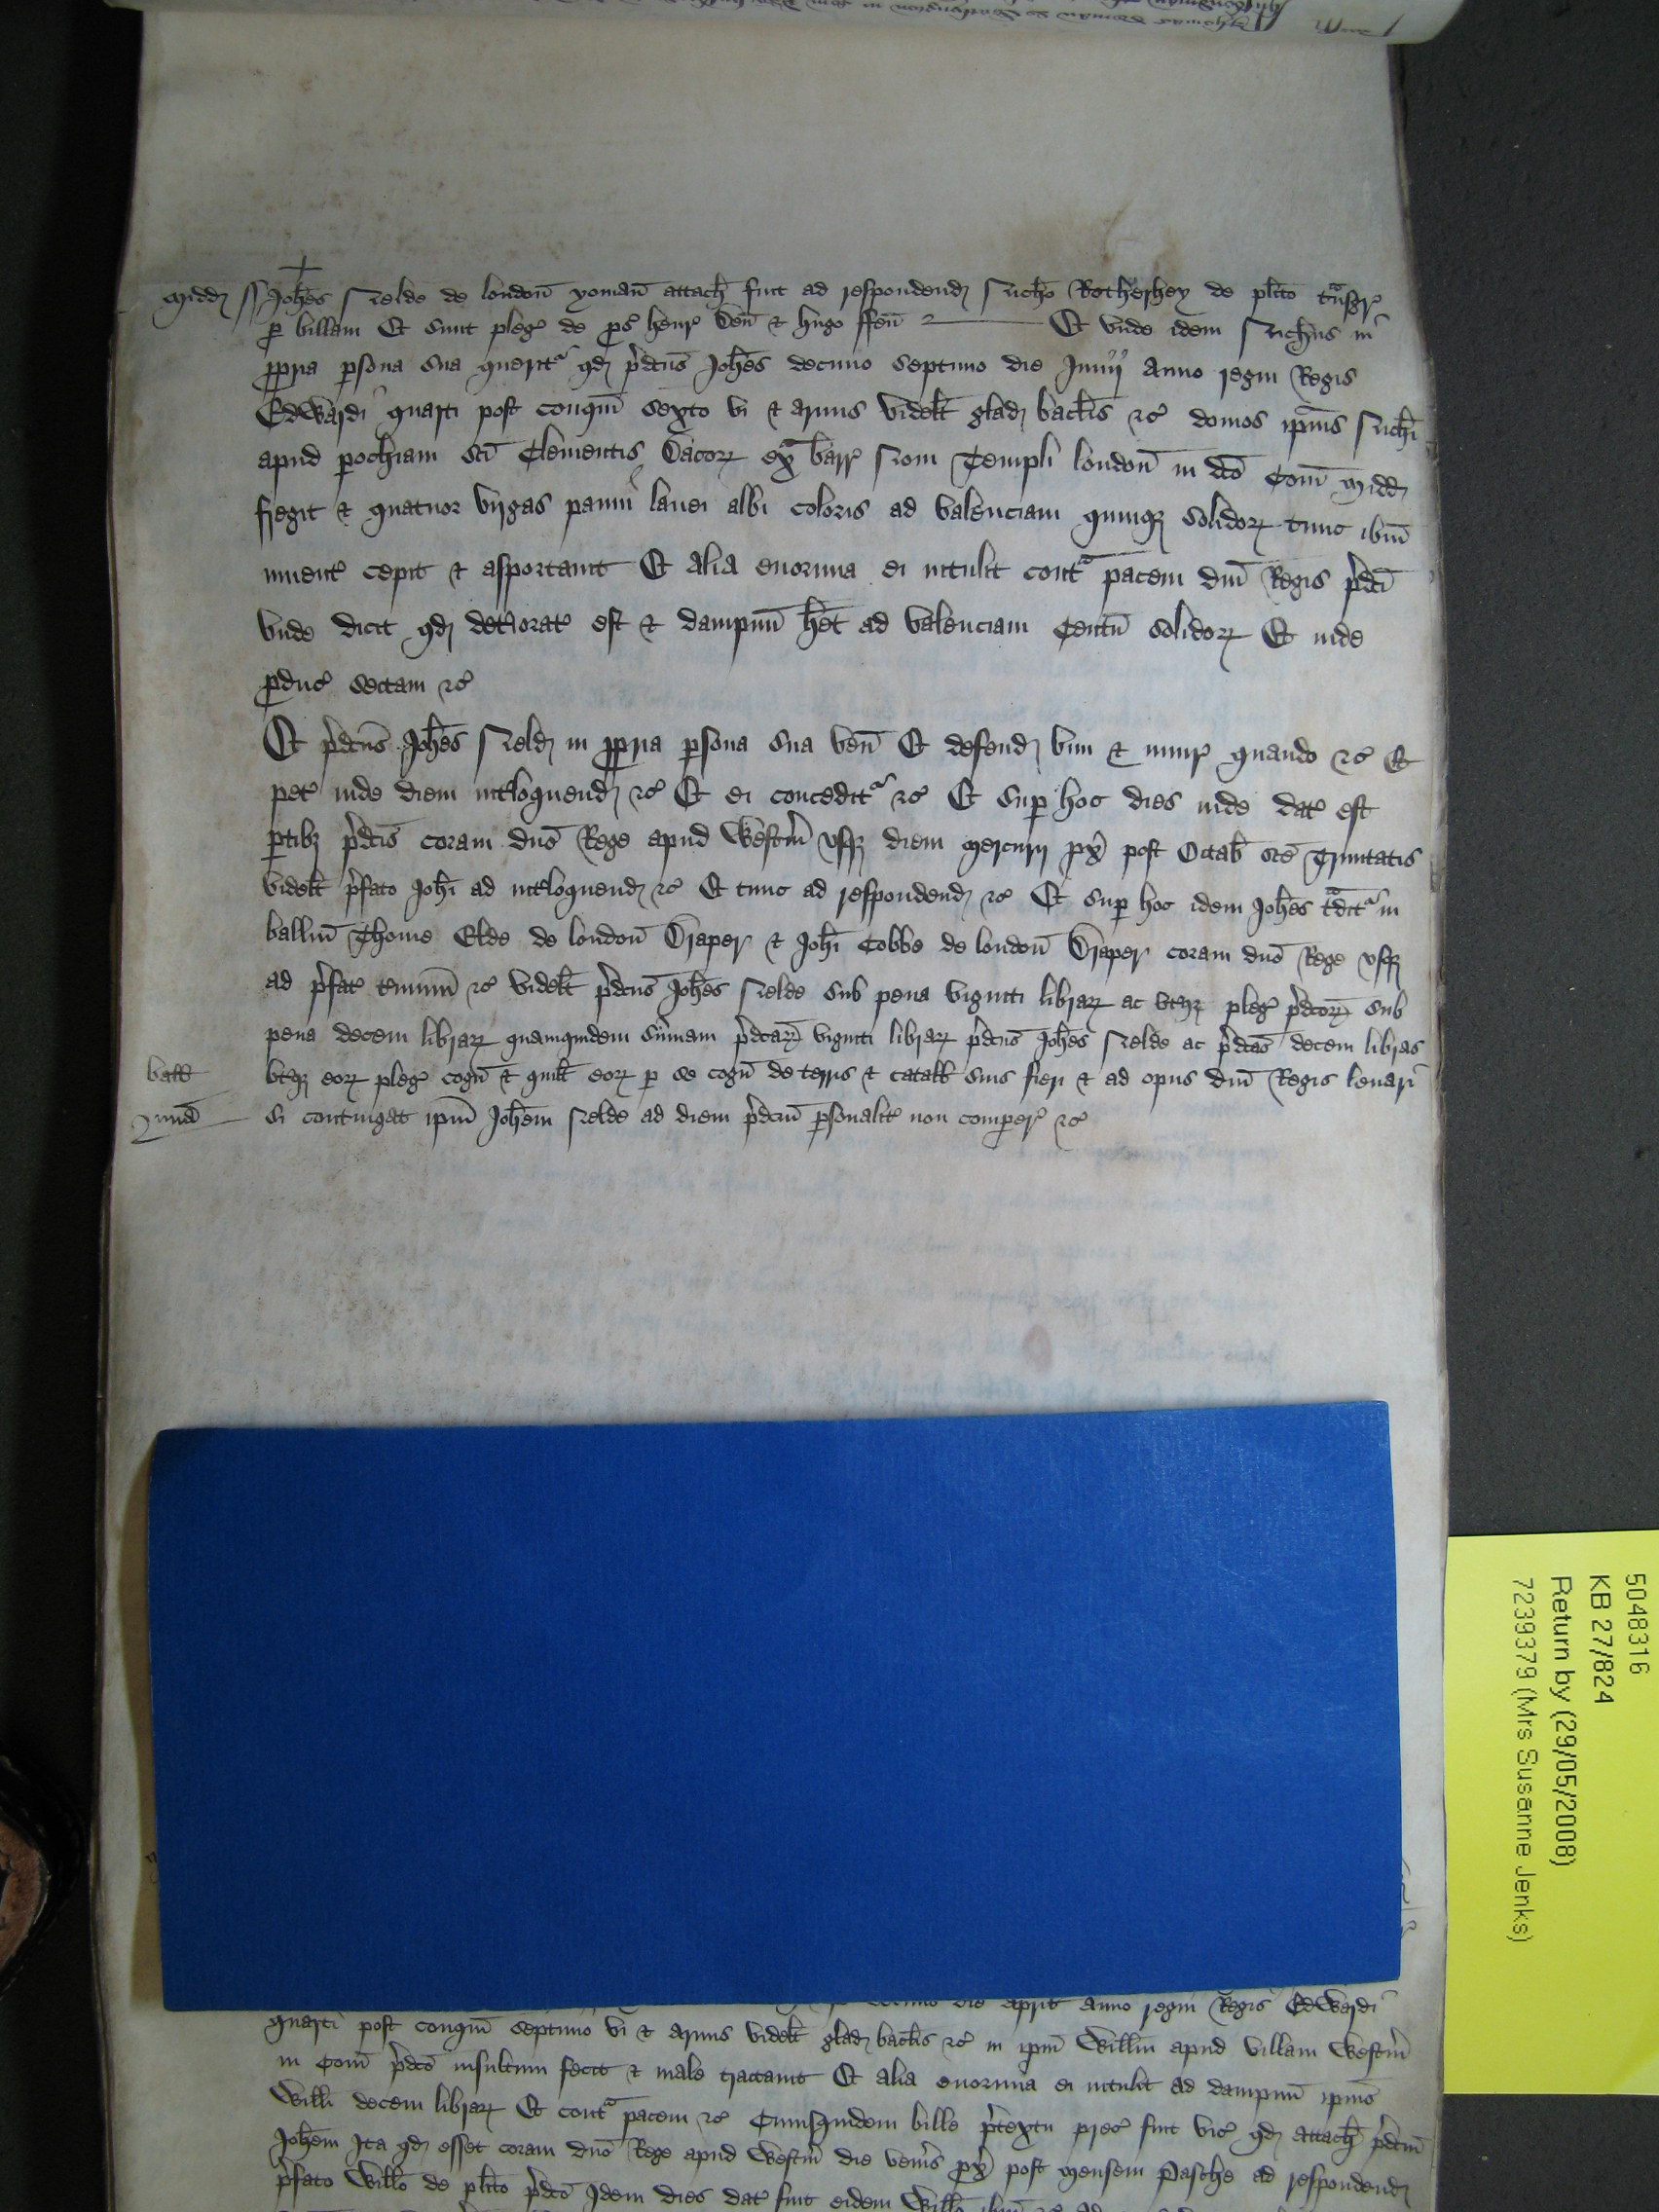 Midd ss Joħes Nelde de london yoman attach fuit ad respondend Nicho Rotherhey de plito tnsgr
p billam Et sunt pleg de ps henr Den & hugo ffen Et unde idem Nichus in
ppria psona sua querit qd pdcus Johes decimo septimo die Junij Anno regni Regis
Edwardi quarti post conqm sexto vi & armis videlt glad baclis &c domos ipius Nichi
apud pochiam sci Clementis Dacor ex barr Novi Templi london in dco Com Midd
fregit & quatuor virgas panni lanei albi coloris ad valenciam quinq solidor tunc ibm
invent cepit & asportavit Et alia enormia ei intulit cont pacem dni Regis pdci
unde dicit qd deteriorat est & dampnum het ad valenciam Centum solidor Et inde
pduc sectam &c
Et pdcus Johes Neld in ppria psona sua ven Et defend vim & iniur quando &c Et
pet inde diem intloquend &c Et ei concedit &c Et sup hoc dies inde dat est
ptibz pdcis coram dno Rege apud Westm usqz diem mercurij px post Octab sce Trinitatis
videlt pfato Johi ad intloquend &c Et tunc ad respondend &c Et sup hoc idem Johes tdit in
ballium Thome Elde de london Draper & Johi Cobbe de london Draper coram dno Rege usqz
ad pfat tminum &c videlt pdcus Johes Nelde sub pena viginti librar ac utqz pleg pdcor sub
pena decem librar quamquidem summam pdcar viginti librar pdcus Johes Nelde ac pdcas decem libras
ball utqz eor pleg cogn & quilt eor p se cogn de terris & catall suis fieri & ad opus dni Regis levari
si contingat ipm Johem Nelde ad diem pdcum psonalit non comper &c
die April anno regni Regis Edwardi
quarti post conqm septimo vi & armis videlt glad baclis &c in ipm Willm apud villam Westm
in Com pdco insultum fecit & male tractavit Et alia enormia ei intulit ad dampnum ipius
Willi decem librar Et cont pacem &c Cuiusquidem bille ptextu prec fuit vic qd attach pdcum
Johem Ita qd esset coram dno Rege apud Westm die venis px post mensem Pasche ad respondend
pfato Willo de plito pdco Idem dies dat fuit eidem Willo ibm &c
5048316
KB 27/824
Return by (29/05/2008)
7239379 (Mrs Susanne Jenks)